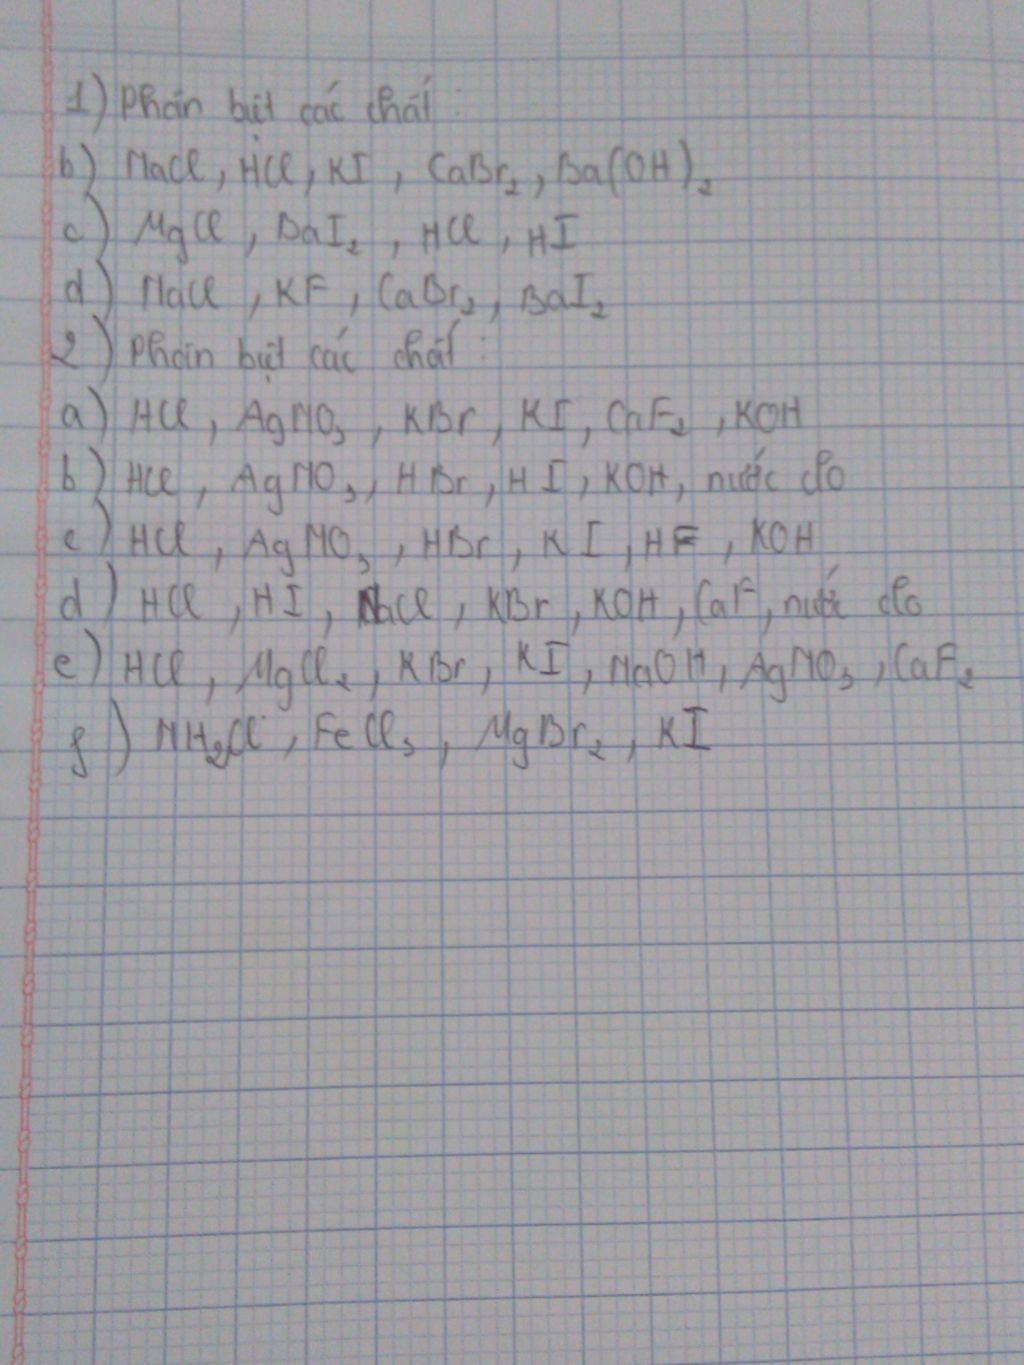 1) Phân biệt các chất :
b) NaCl, HCl, KI, CaBr₂, Ba(OH)₂
c) MgCl, BaI₂, HCl, HI
d) NaCl, KF, CaBr₂, BaI₂
2) Phân biệt các chất :
a) HCl, AgNO₃, KBr, KI, CaF₂, KOH
b) HCl, AgNO₃, HBr, HI, KOH, nước clo
c) HCl, AgNO₃, HBr, KI, HF, KOH
d) HCl, HI, NaCl, KBr, KOH, CaF, nước clo
e) HCl, MgCl₂, KBr, KI, NaOH, AgNO₃, CaF₂
f) NH₂Cl, FeCl₃, MgBr₂, KI